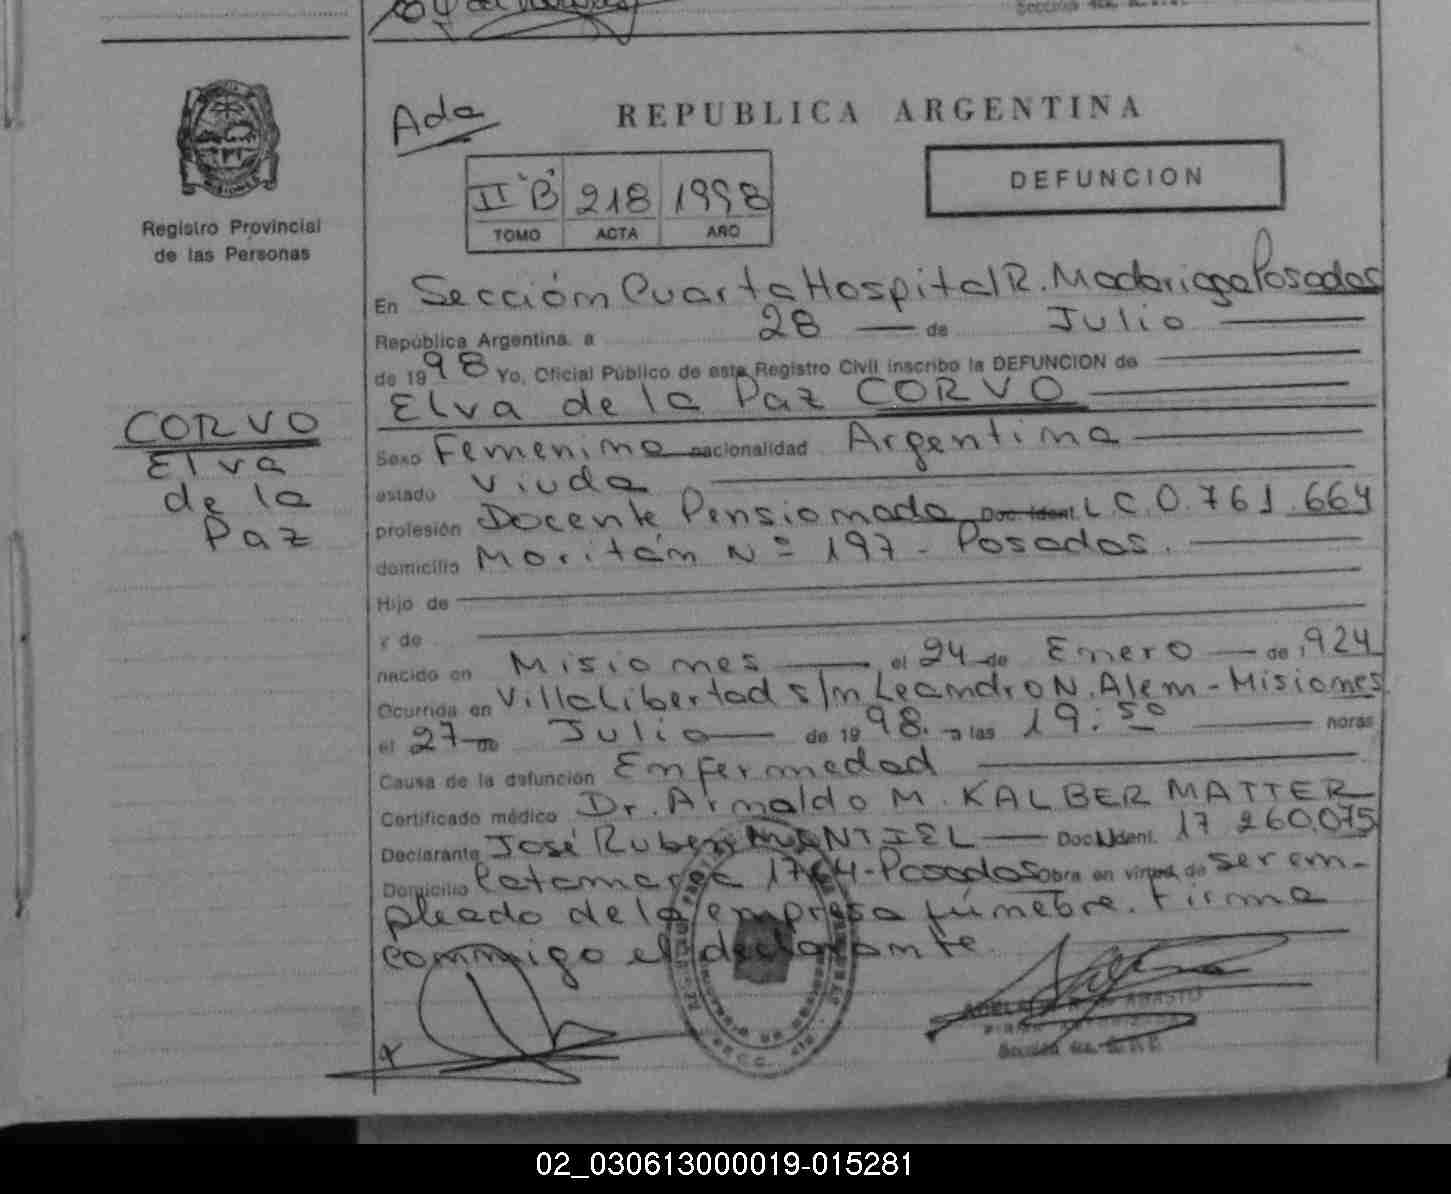 Ada
REPUBLICA ARGENTINA
II "B" 218 1998
TOMO ACTA AÑO
DEFUNCION
MISIONES
Registro Provincial
de las Personas
En Sección Cuarta Hospital R. Madariaga Posadas
República Argentina, a 28 — de Julio
de 1998 Yo, Oficial Público de este Registro Civil inscribo la DEFUNCION de
Elva de la Paz CORVO
CORVO
Elva
de la
Paz
Sexo Femenino nacionalidad Argentina
estado Viuda
profesión Docente Pensionada Doc. Ident. L.C. 0.761.664
domicilio Moritán Nº 197 - Posadas.
Hijo de
y de
nacido en Misiones — el 24 de Enero — de 1924
Ocurrida en Villa Libertad s/n Leandro N. Alem - Misiones
el 27 de Julio — de 1998. a las 19:50 — horas
Causa de la defunción Enfermedad
Certificado médico Dr. Arnaldo M. KALBERMATTER
Declarante José Ruben MONTIEL — Doc. Ident. 17 260.075
Domicilio Catamarca 1764 - Posadas obra en virtud de ser em-
pleado de la empresa fúnebre. Firma
conmigo el declarante.
02_030613000019-015281